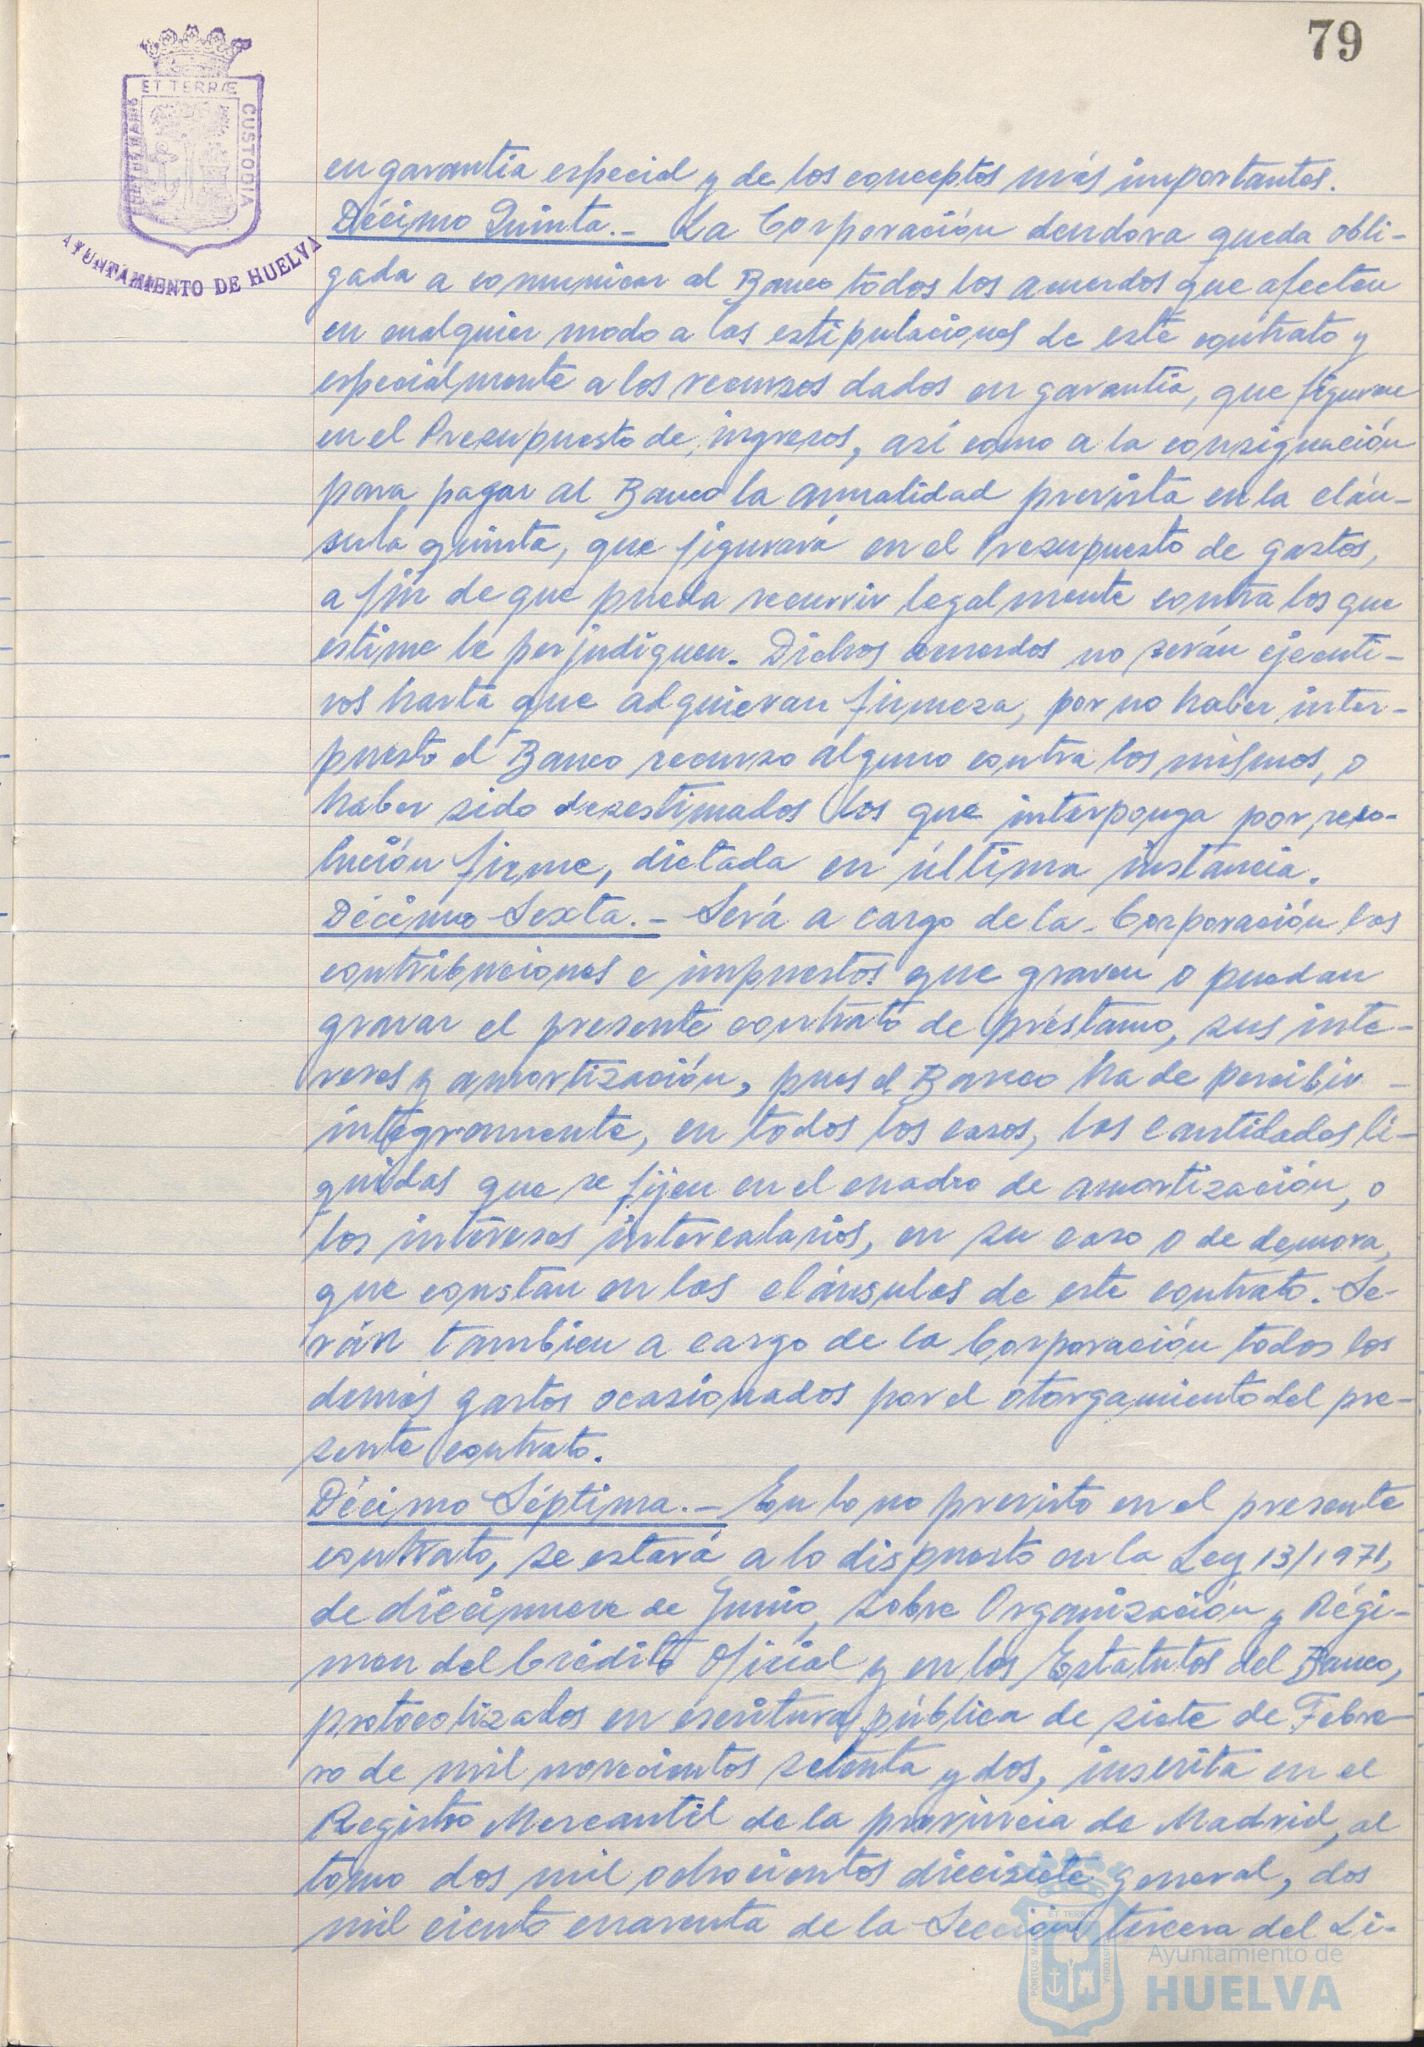 79
ET TERRÆ
PORTUS MARIS
CUSTODIA
AYUNTAMIENTO DE HUELVA
en garantía especial y de los conceptos más importantes.
Décimo Quinta.- La Corporación deudora queda obli-
gada a comunicar al Banco todos los acuerdos que afecten
en cualquier modo a las estipulaciones de este contrato y
especialmente a los recursos dados en garantía, que figuran
en el Presupuesto de ingresos, así como a la consignación
para pagar al Banco la anualidad prevista en la cláu-
sula quinta, que figurará en el Presupuesto de gastos,
a fin de que pueda recurrir legalmente contra los que
estime le perjudiquen. Dichos acuerdos no serán ejecuti-
vos hasta que adquieran firmeza, por no haber inter-
puesto el Banco recurso alguno contra los mismos, o
haber sido desestimados los que interponga por reso-
lución firme, dictada en última instancia.
Décimo Sexta.- Será a cargo de la Corporación las
contribuciones e impuestos que graven o puedan
gravar el presente contrato de préstamo, sus inte-
reses y amortización, pues el Banco ha de percibir
integramente, en todos los casos, las cantidades lí-
quidas que se fijen en el cuadro de amortización, o
los intereses intercalarios, en su caso o de demora,
que constan en las cláusulas de este contrato. Se-
rán tambien a cargo de la Corporación todos los
demás gastos ocasionados por el otorgamiento del pre-
sente contrato.
Décimo Séptima.- En lo no previsto en el presente
contrato, se estará a lo dispuesto en la Ley 13/1971,
de diecinueve de Junio, sobre Organización y Régi-
men del Crédito Oficial y en los Estatutos del Banco,
protocolizados en escritura pública de siete de Febre-
ro de mil novecientos setenta y dos, inscrita en el
Registro Mercantil de la provincia de Madrid, al
tomo dos mil ochocientos diecisiete general, dos
mil ciento cuarenta de la Sección tercera del Li-
ET TERRÆ
PORTUS MARIS
CUSTODIA
Ayuntamiento de
HUELVA